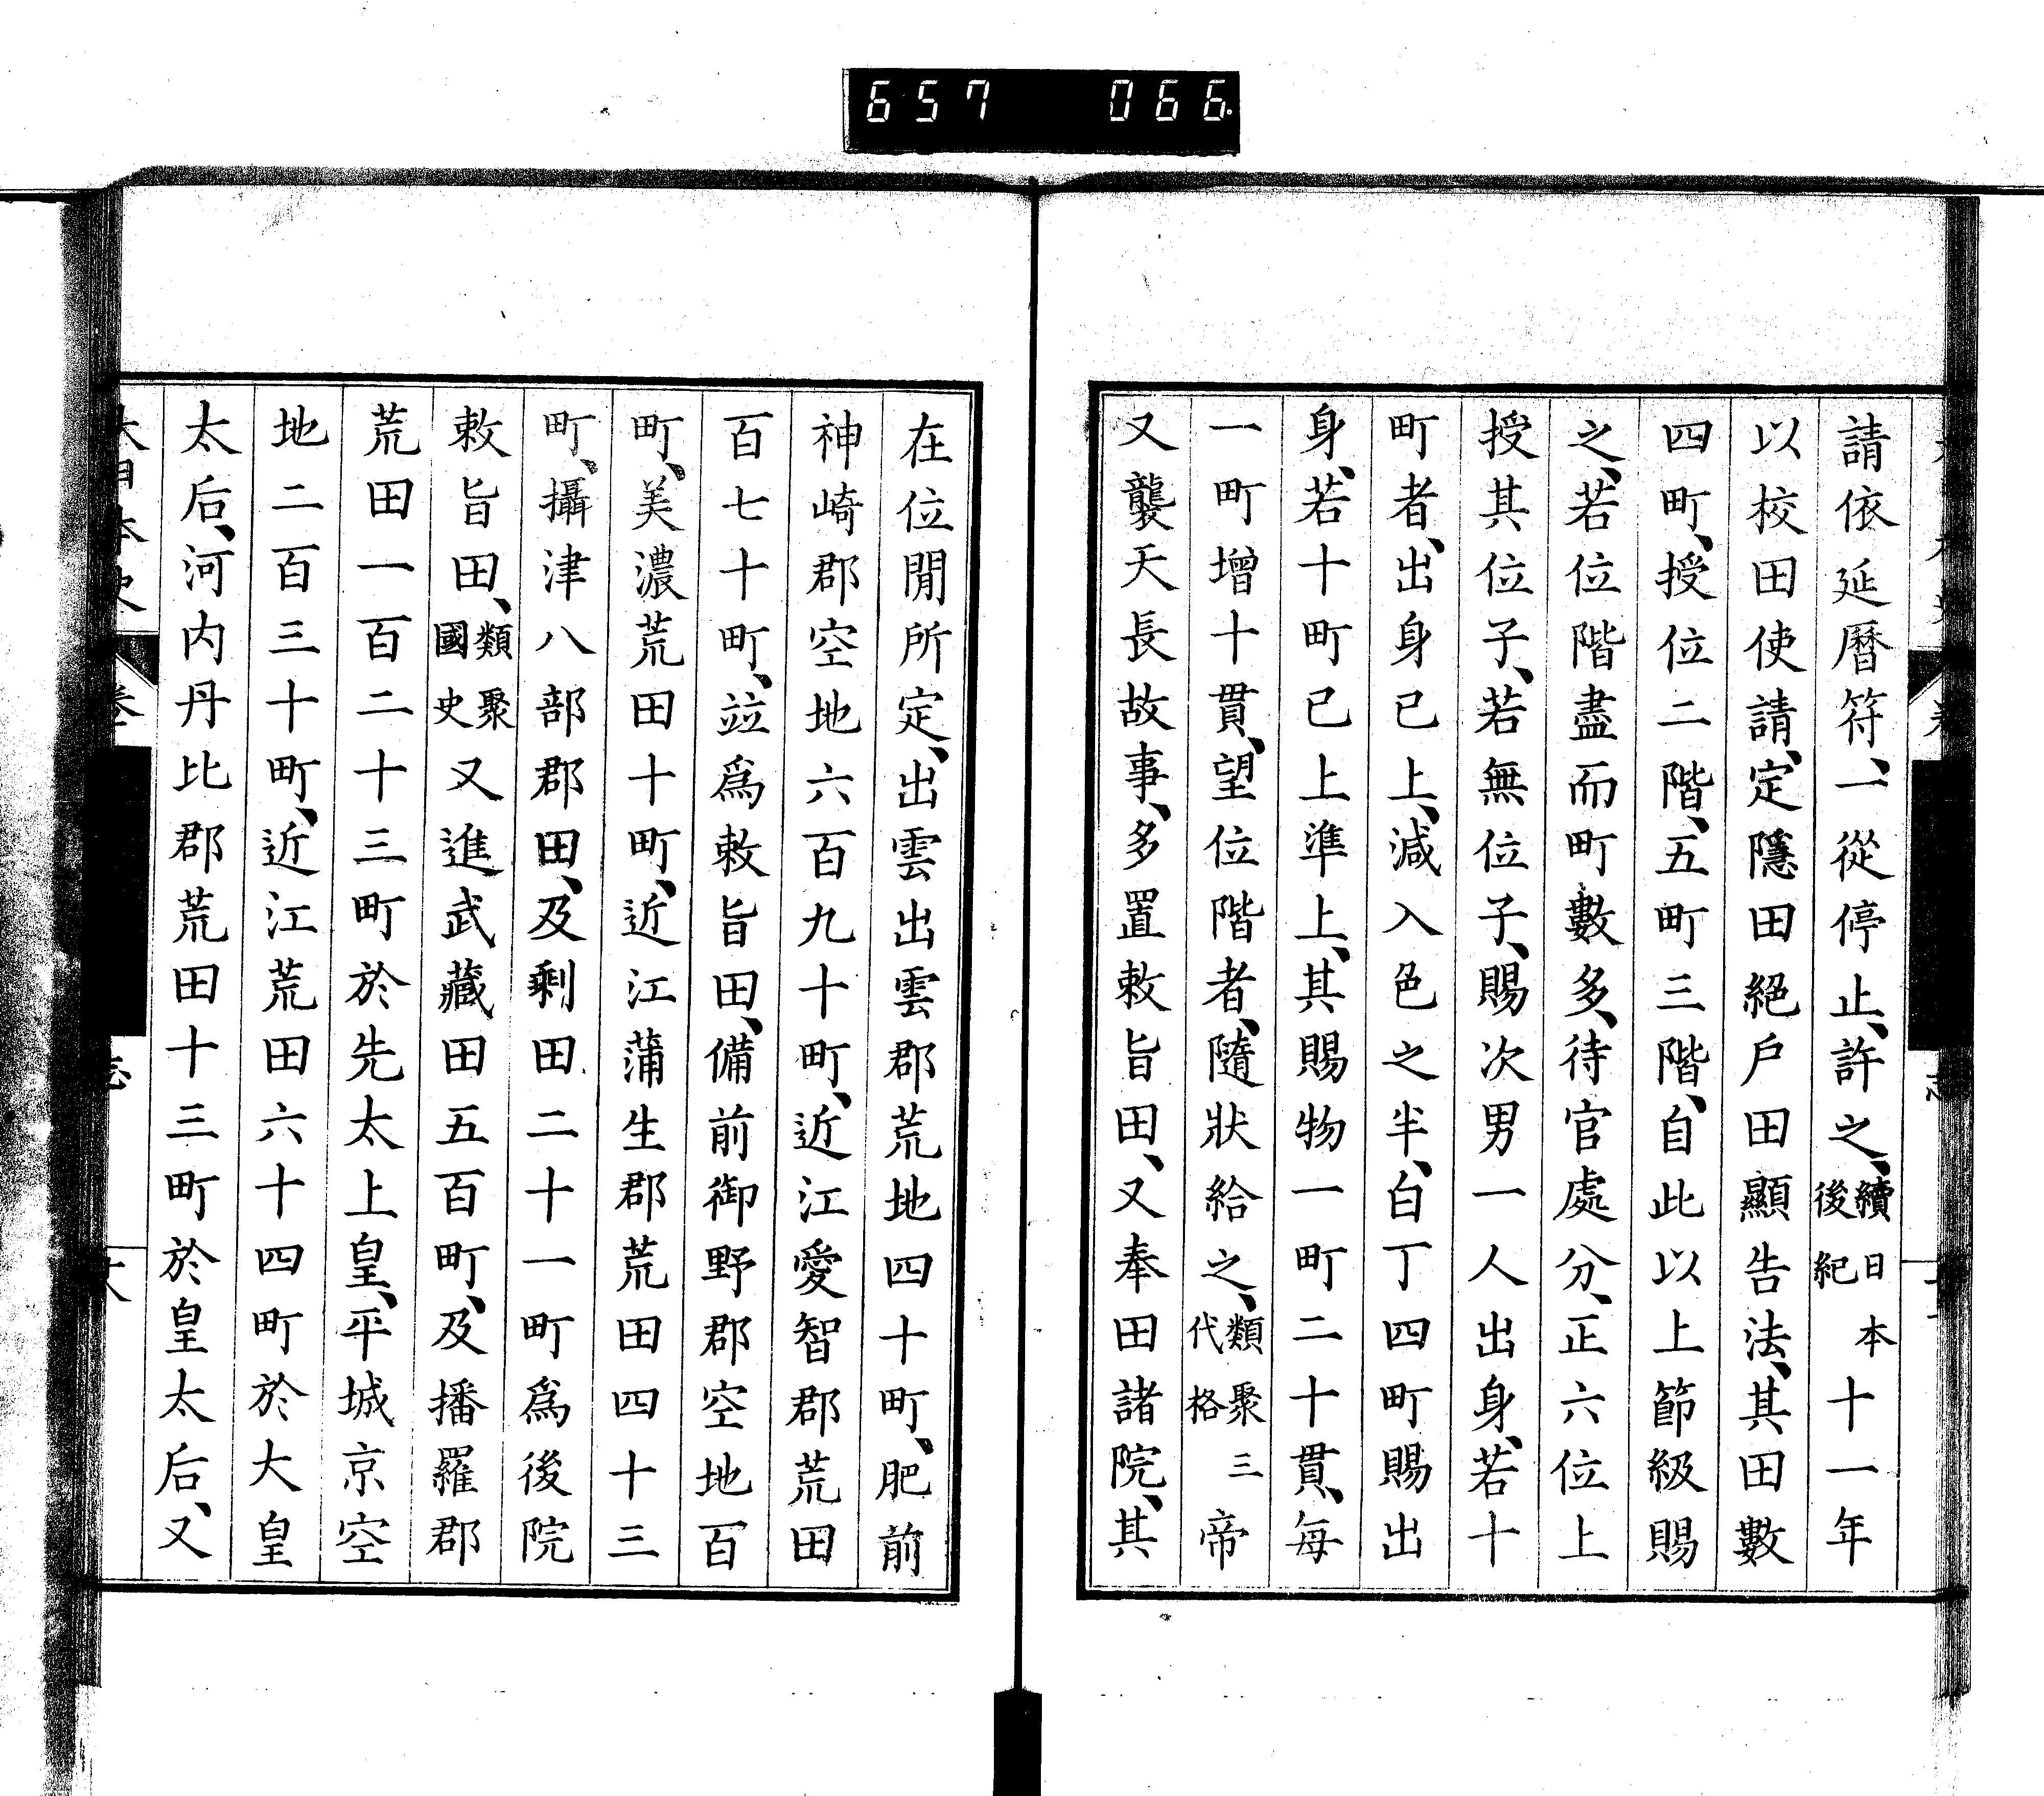 657 066
請依延曆符、一從停止、許之、續日本後紀十一年
以校田使請、定隱田絕戶田顯告法、其田數
四町、授位二階、五町三階、自此以上節級賜
之、若位階盡而町數多、待官處分、正六位上
授其位子、若無位子、賜次男一人出身、若十
町者、出身已上、減入色之半、白丁四町賜出
身、若十町已上準上、其賜物一町二十貫、每
一町增十貫、望位階者、隨狀給之、類聚三代格帝
又襲天長故事、多置敕旨田、又奉田諸院、其
在位閒所定、出雲出雲郡荒地四十町、肥前
神崎郡空地六百九十町、近江愛智郡荒田
百七十町、竝爲敕旨田、備前御野郡空地百
町、美濃荒田十町、近江蒲生郡荒田四十三
町、攝津八部郡田、及剩田二十一町爲後院
敕旨田、類聚國史又進武藏田五百町、及播羅郡
荒田一百二十三町於先太上皇、平城京空
地二百三十町、近江荒田六十四町於大皇
太后、河内丹比郡荒田十三町於皇太后、又
大日本史 卷 志